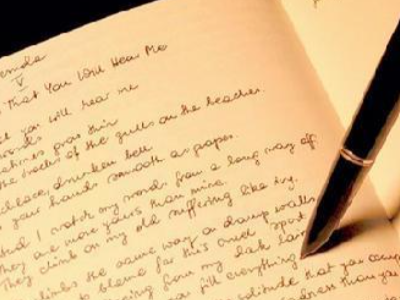 V
That You Will Hear Me
you will hear me
words
sometimes grow thin
the tracks of the gulls on the beaches.
necklace, drunken bell
your hands smooth as grapes.
And I watch my words from a long way off.
They are more yours than mine.
They climb on my old suffering like ivy.
climbs the same way on damp walls
to blame for this cruel sport
my dark lair
fill everything
solitude that you occupy
sadness than you